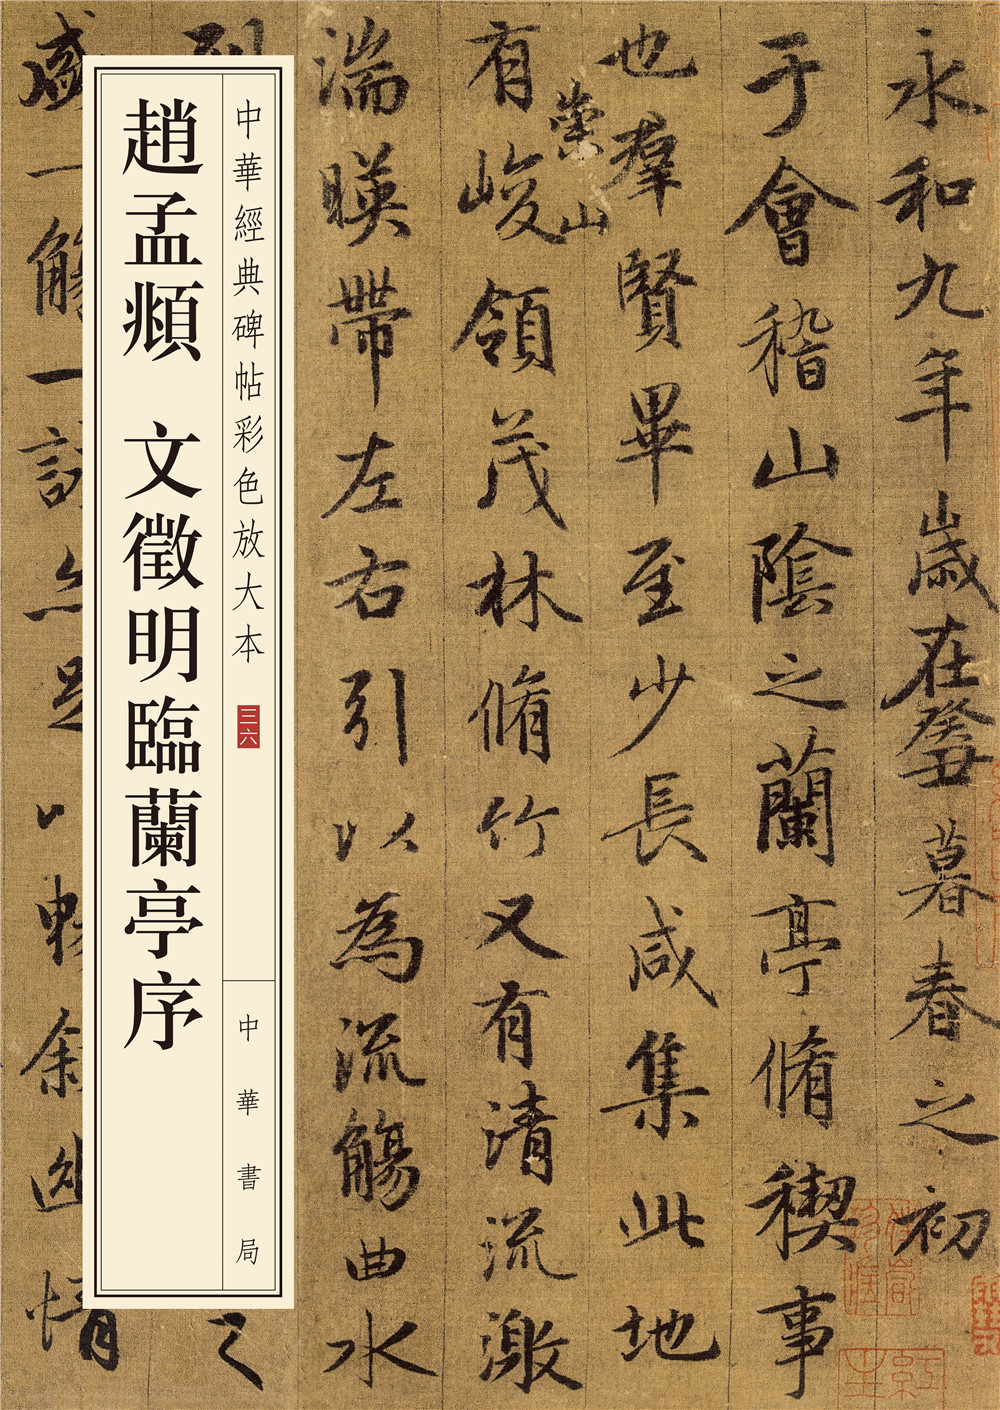 永和九年歲在癸丑暮春之初
于會稽山陰之蘭亭脩稧事
也羣賢畢至少長咸集此地
有崇山峻領茂林脩竹又有清流激
湍暎帶左右引以為流觴曲水
列
之
盛一觴一詠亦足以暢余幽情
中華經典碑帖彩色放大本
三六
中華書局
趙孟頫 文徵明臨蘭亭序